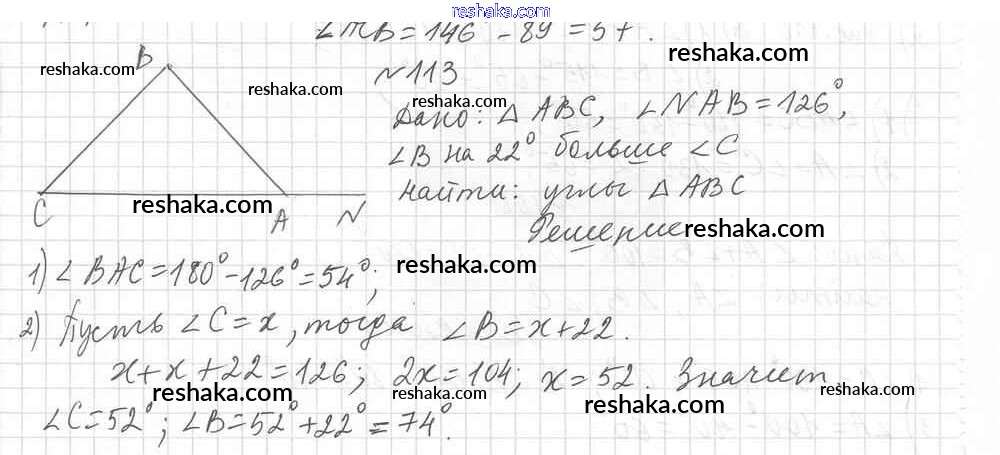 reshaka.com
∠ACB = 146° - 89° = 57°.
B
reshaka.com
reshaka.com
reshaka.com
№113
reshaka.com
Дано: △ABC, ∠NAB = 126°,
∠B на 22° больше ∠C
Найти: углы △ABC
C
reshaka.com
A
N
Решение
reshaka.com
1) ∠BAC = 180° - 126° = 54°;
reshaka.com
2) Пусть ∠C = x, тогда ∠B = x + 22.
x + x + 22 = 126; 2x = 104; x = 52. Значит,
reshaka.com
reshaka.com
reshaka.com
reshaka.com
∠C = 52°; ∠B = 52° + 22° = 74°.